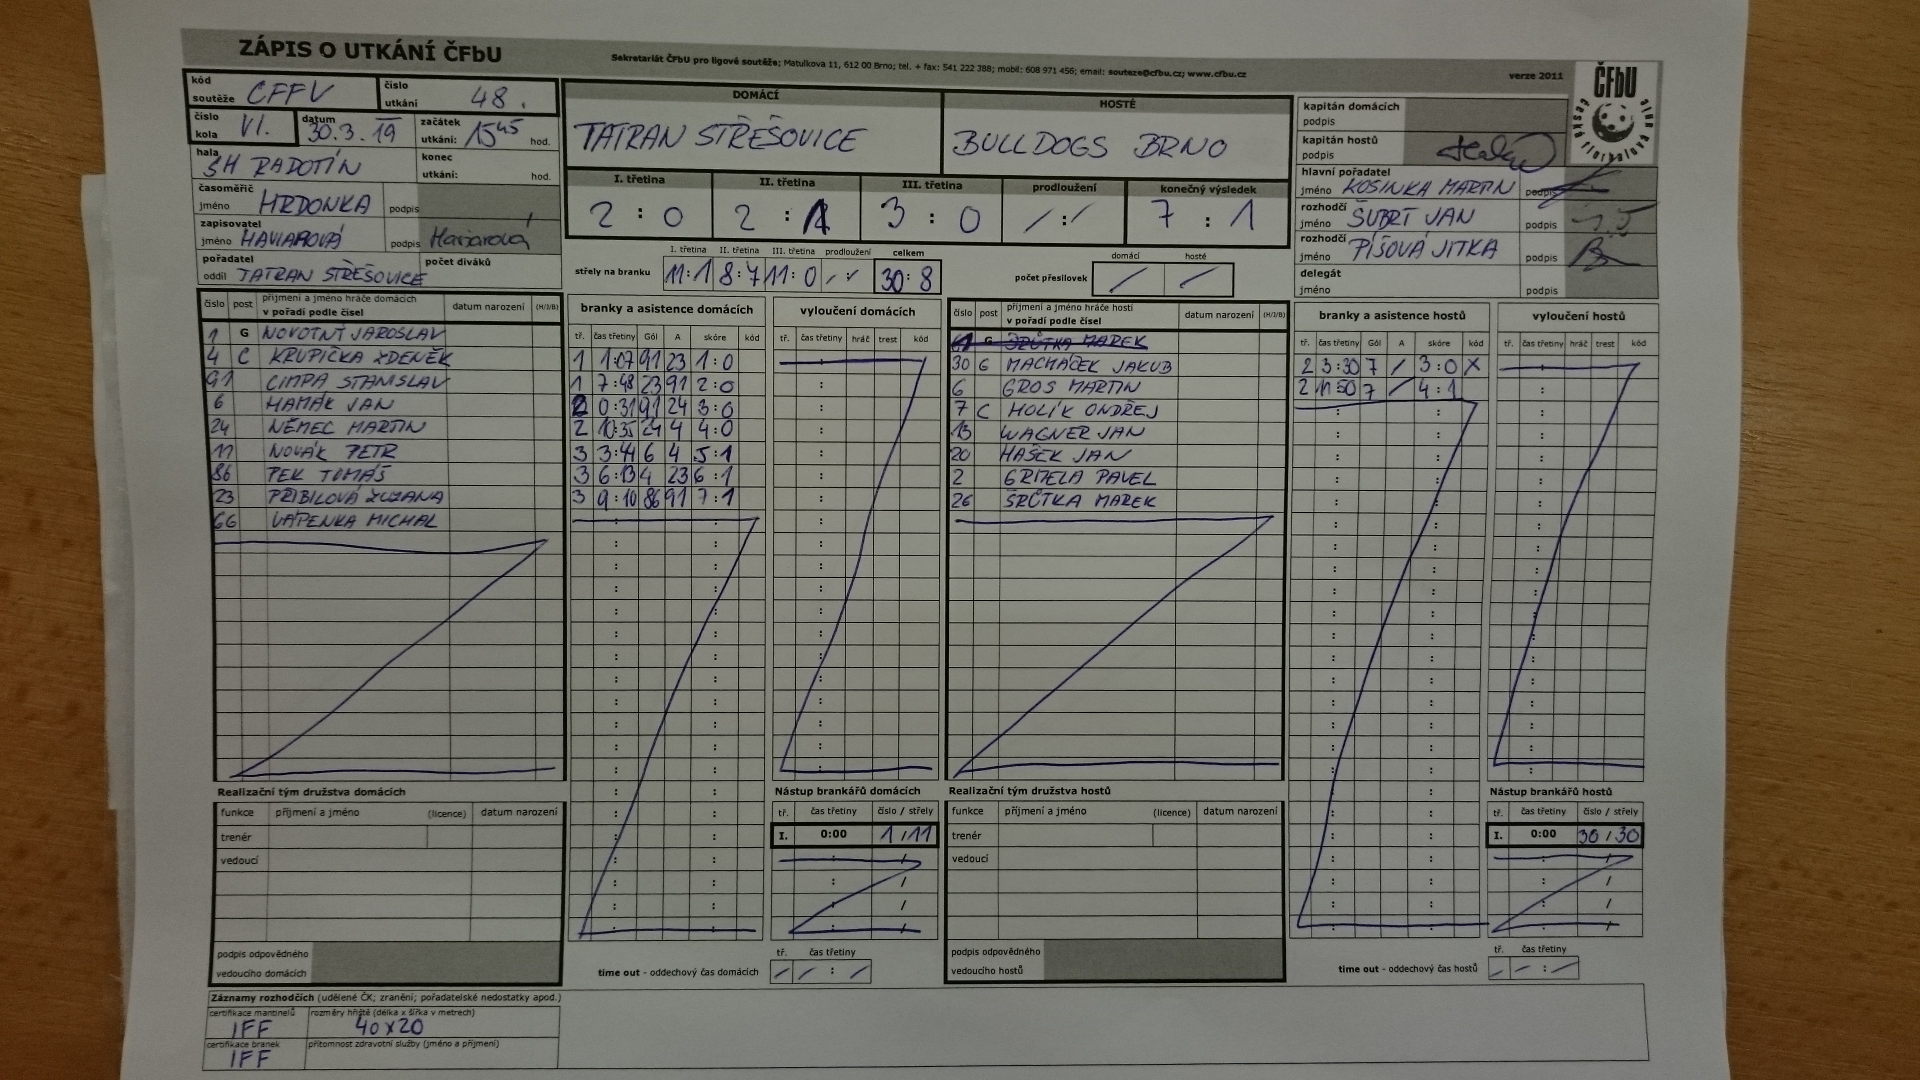 ZÁPIS O UTKÁNÍ ČFbU
Sekretariát ČFbU pro ligové soutěže; Matulkova 11, 612 00 Brno; tel. + fax: 541 222 388; mobil: 608 971 456; email: souteze@cfbu.cz; www.cfbu.cz
verze 2011
ČFbU
kód soutěže CFFV
číslo utkání 48.
číslo kola VI.
datum 30.3.19
začátek utkání: 15 45 hod.
hala SH RADOTÍN
konec utkání: hod.
časoměřič jméno HRDONKA podpis
zapisovatel jméno HAVIAROVÁ podpis Haviarová
pořadatel oddíl TATRAN STŘEŠOVICE
počet diváků
DOMÁCÍ
TATRAN STŘEŠOVICE
HOSTÉ
BULLDOGS BRNO
I. třetina II. třetina III. třetina prodloužení konečný výsledek
2 : 0 2 : 1 3 : 0 / : / 7 : 1
I. třetina II. třetina III. třetina prodloužení celkem
střely na branku 11:1 8:7 11:0 /:/ 30:8
domácí hosté
počet přesilovek / /
kapitán domácích podpis
kapitán hostů podpis
hlavní pořadatel jméno KOSINKA MARTIN podpis
rozhodčí jméno ŠUBRT JAN podpis
rozhodčí jméno PÍŠOVÁ JITKA podpis
delegát jméno podpis
číslo post příjmení a jméno hráče domácích v pořadí podle čísel datum narození (H/J/B)
1 G NOVOTNÝ JAROSLAV
4 C KRUPIČKA ZDENĚK
91 CIMPA STANISLAV
6 HAMÁK JAN
24 NĚMEC MARTIN
11 NOVÁK PETR
86 PEK TOMÁŠ
23 PŘIBILOVÁ ZUZANA
66 VÁPENKA MICHAL
branky a asistence domácích
tř. čas třetiny Gól A skóre kód
1 1:07 91 23 1:0
1 7:48 23 91 2:0
2 0:31 91 24 3:0
2 10:35 24 4 4:0
3 3:44 6 4 5:1
3 6:13 4 23 6:1
3 9:10 86 91 7:1
vyloučení domácích
tř. čas třetiny hráč trest kód
číslo post příjmení a jméno hráče hostí v pořadí podle čísel datum narození (H/J/B)
G MAREK
30 G MACHÁČEK JAKUB
6 GROS MARTIN
7 C HOLÍK ONDŘEJ
13 WAGNER JAN
20 HAŠEK JAN
2 GRMELA PAVEL
26 ŠRŮTKA MAREK
branky a asistence hostů
tř. čas třetiny Gól A skóre kód
2 3:30 7 / 3:0 X
2 11:50 7 / 4:1
vyloučení hostů
tř. čas třetiny hráč trest kód
Realizační tým družstva domácích
funkce příjmení a jméno (licence) datum narození
trenér
vedoucí
podpis odpovědného vedoucího domácích
Nástup brankářů domácích
tř. čas třetiny číslo / střely
I. 0:00 1 / 11
tř. čas třetiny
time out - oddechový čas domácích / / : /
Realizační tým družstva hostů
funkce příjmení a jméno (licence) datum narození
trenér
vedoucí
podpis odpovědného vedoucího hostů
Nástup brankářů hostů
tř. čas třetiny číslo / střely
I. 0:00 30 / 30
tř. čas třetiny
time out - oddechový čas hostů / / : /
Záznamy rozhodčích (udělené ČK; zranění; pořadatelské nedostatky apod.)
certifikace mantinelů IFF
rozměry hřiště (délka x šířka v metrech) 40x20
certifikace branek IFF
přítomnost zdravotní služby (jméno a příjmení)